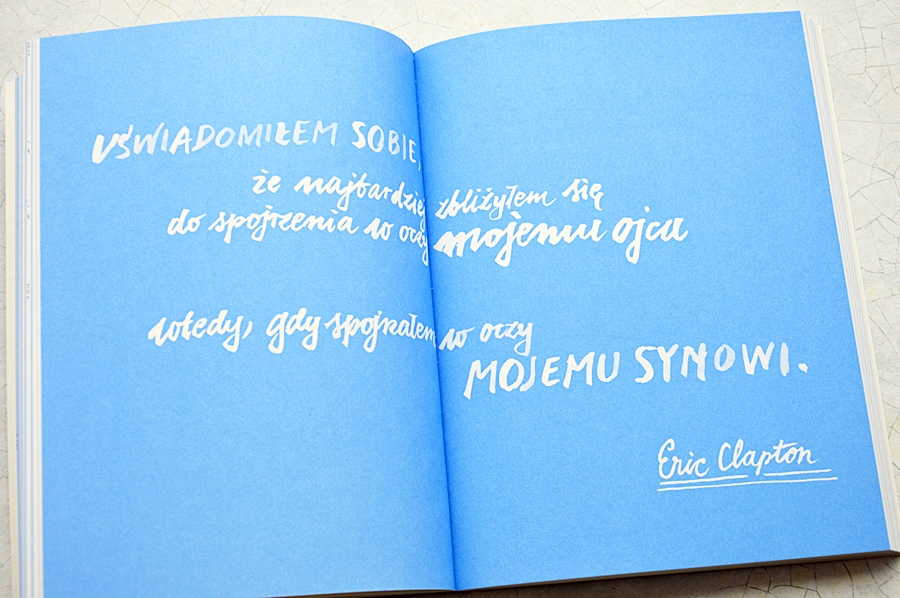 UŚWIADOMIŁEM SOBIE,
że najbardziej zbliżyłem się
do spojrzenia w oczy mojemu ojcu
wtedy, gdy spojrzałem w oczy
MOJEMU SYNOWI.
Eric Clapton